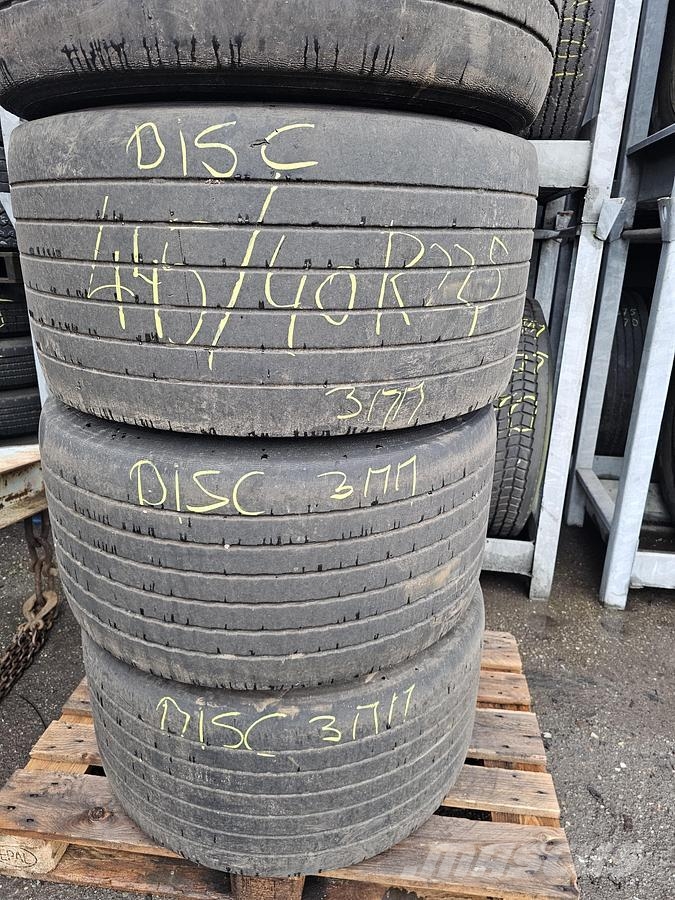 DISC
445/40R22,5
3mm
DISC 3mm
DISC 3mm
EPAL